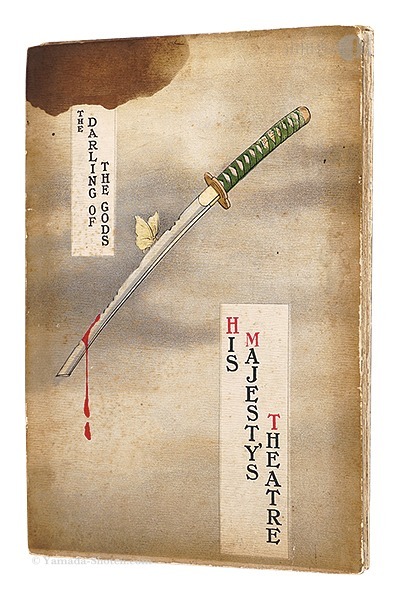 THE
DARLING OF
THE GODS
HIS
MAJESTY'S
THEATRE
© Yamada-Shoten.com